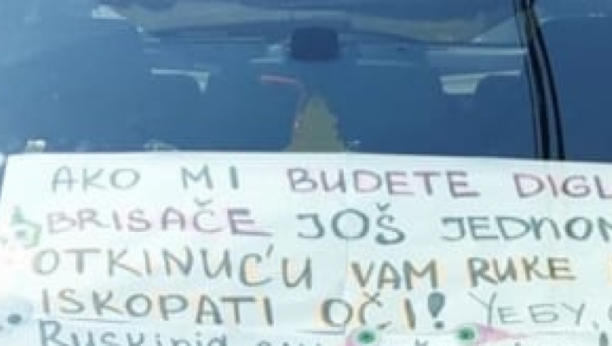 AKO MI BUDETE DIGL
BRISAČE JOŠ JEDNOM
OTKINUĆU VAM RUKE
ISKOPATI OČI! YEБУ